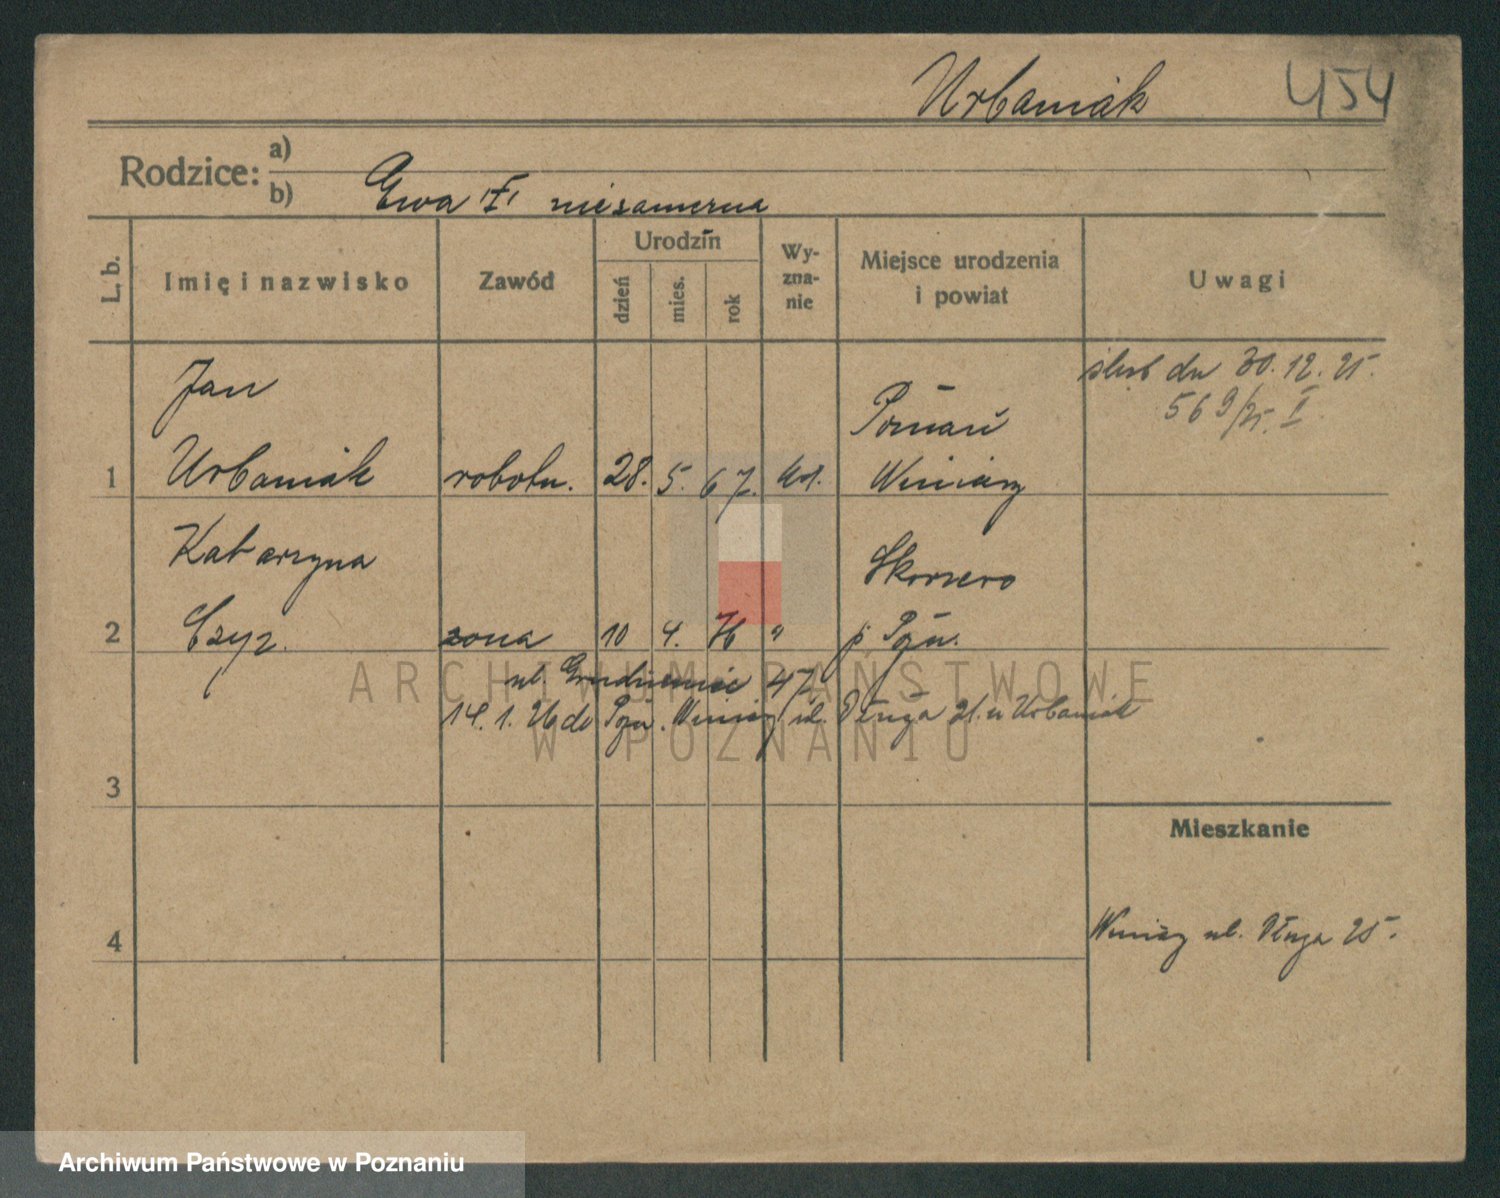 Urbaniak 454
Rodzice: a)
b) Ewa niezamężna
L. b.
Imię i nazwisko
Zawód
Urodzin
dzień
mies.
rok
Wy-
zna-
nie
Miejsce urodzenia
i powiat
Uwagi
Jan
Urbaniak
1
robotn.
28. 5. 67.
Poznań
Winiary
ślub dn 30. 12. 25.
569/25. I
Katarzyna
Czyż.
2
żona
10 4. 76 "
p. Pozn.
ul. 47
14. 1. 26 do Pozn. Winiary ul. Długa 21. u Urbaniak
3
4
Mieszkanie
Winiary ul. Długa 25.
ARCHIWUM PAŃSTWOWE
W POZNANIU
Archiwum Państwowe w Poznaniu